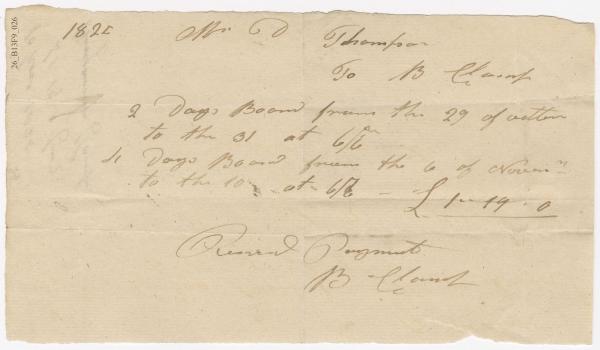 26_B13F9_026
1821 Mr D Thompson
To B Clamp
2 Days Board from the 29 of
to the 31 at 6/6
4 Days Board from the 6 of Novem
to the 10 at 6/6 - £ 1 " 19 " 0
Receivd Payment
B Clamp